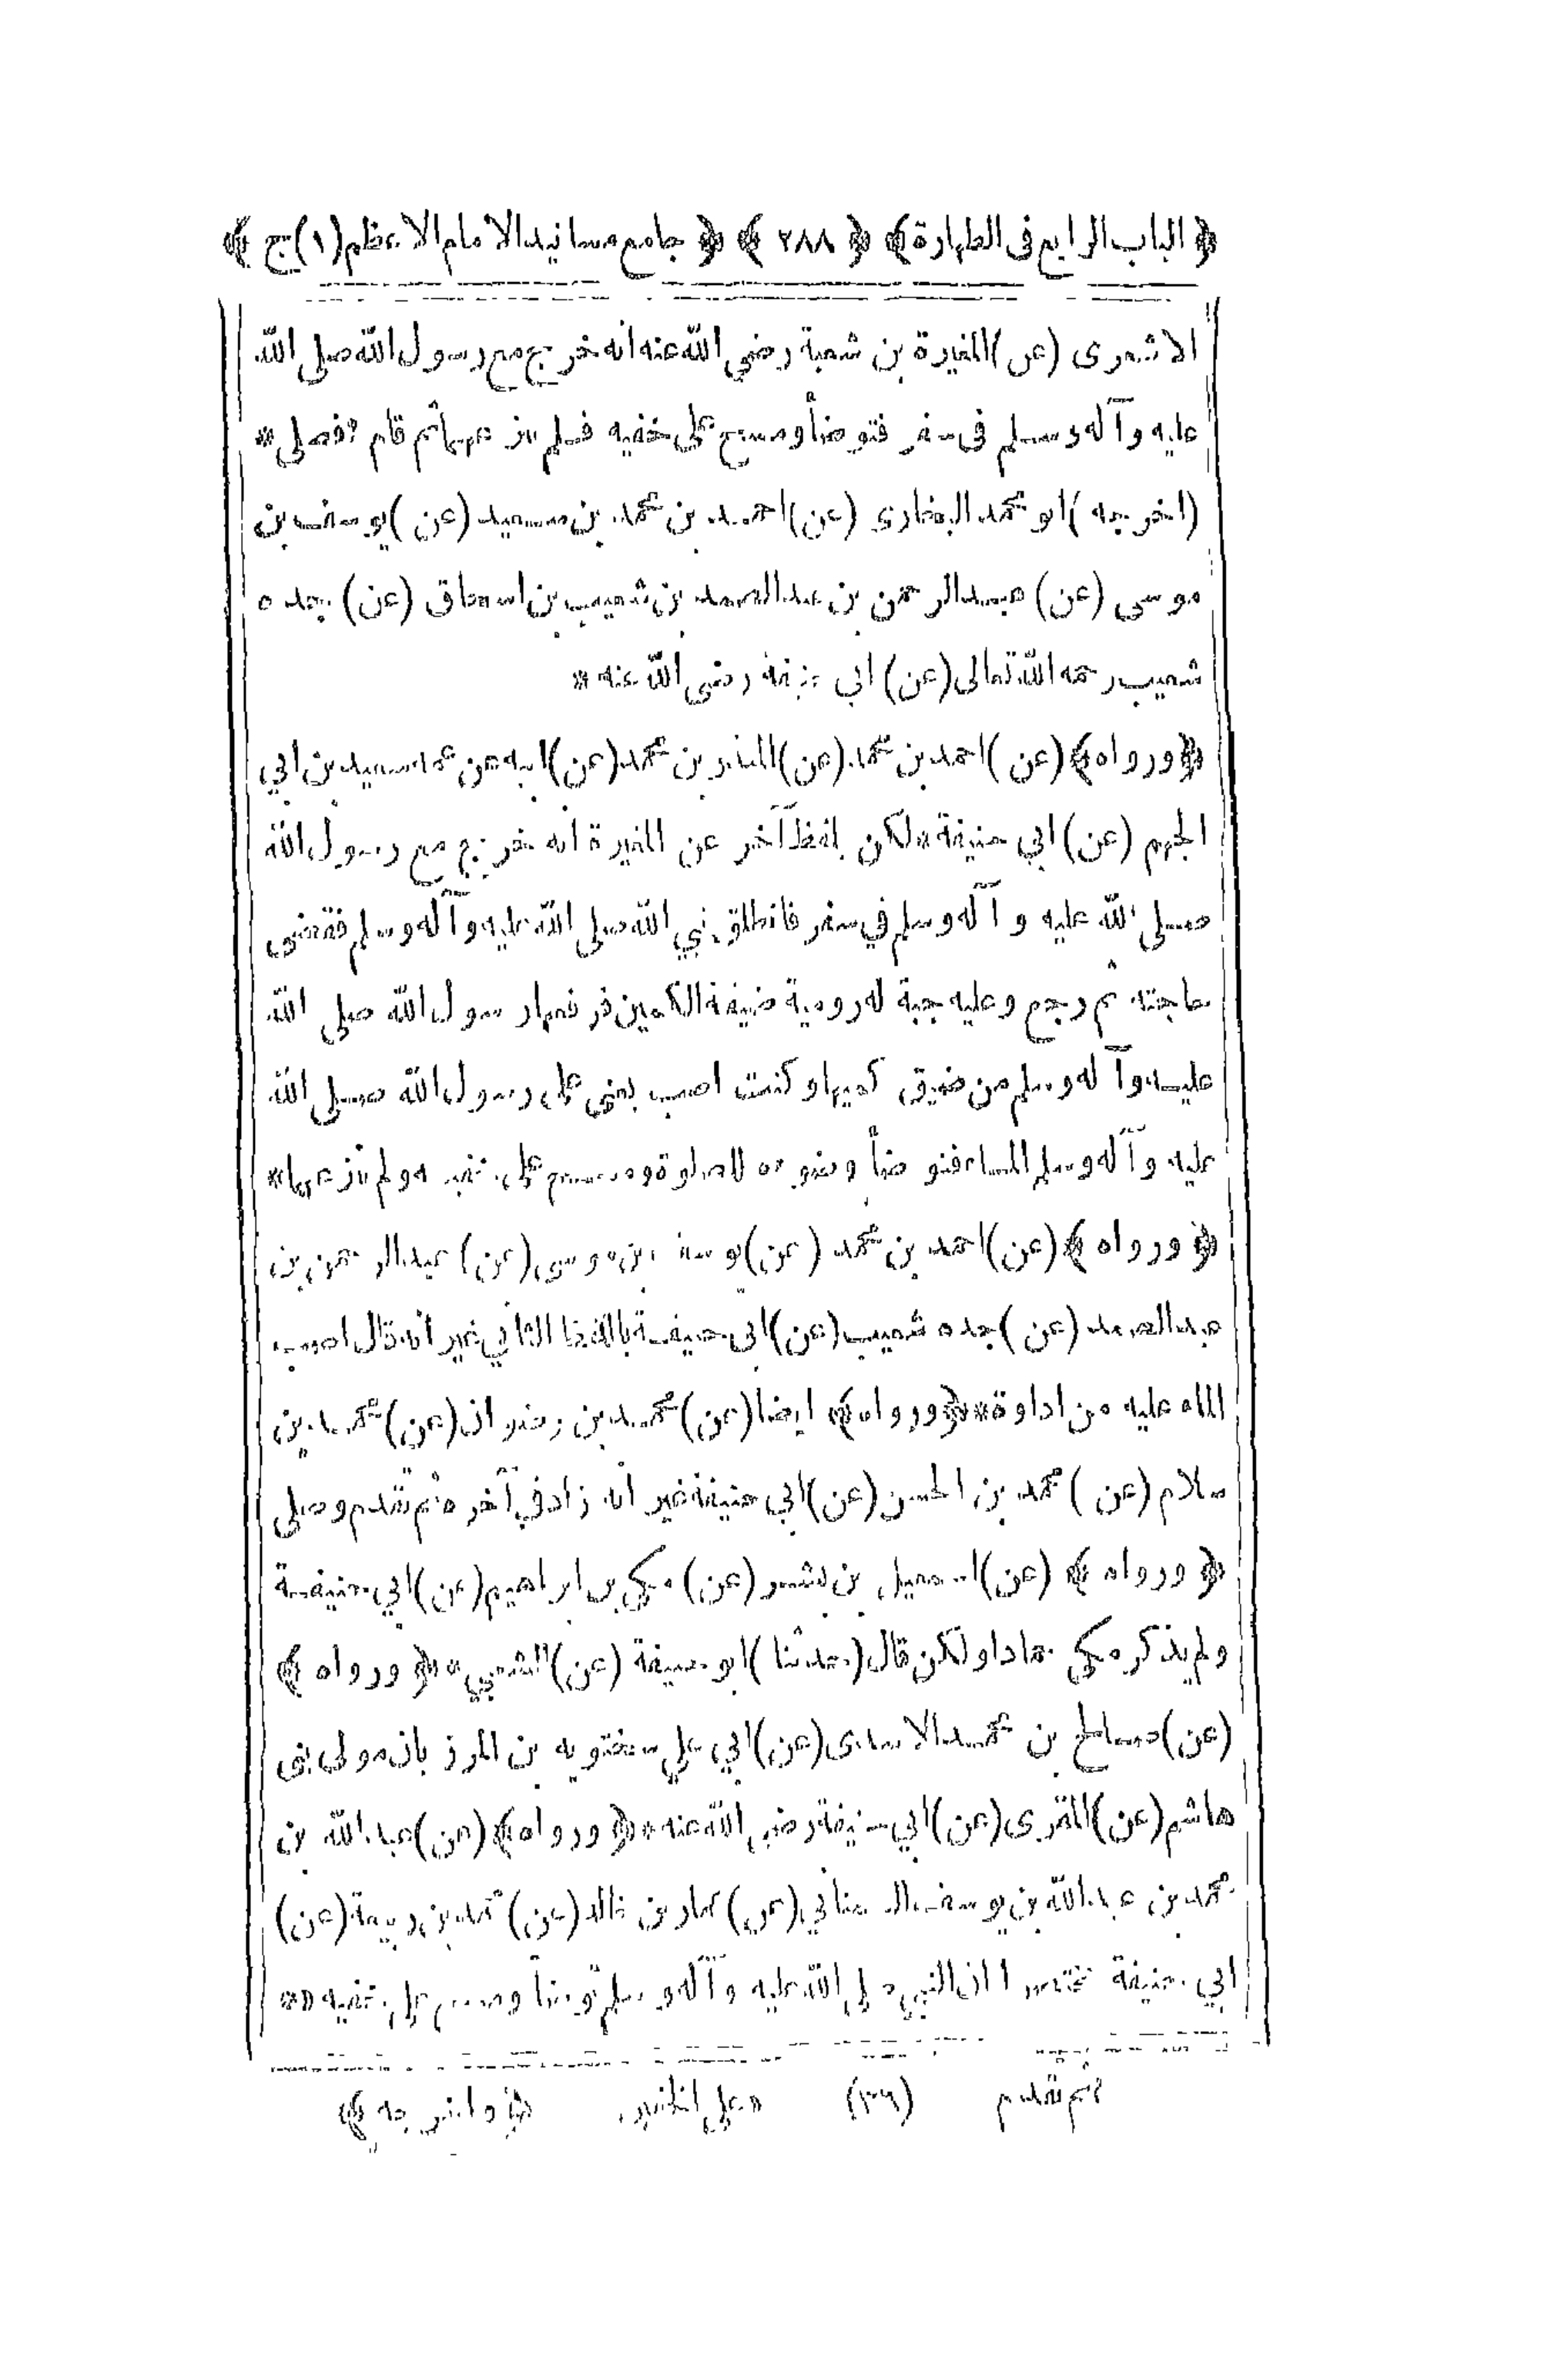 ﴿ الباب الرابع فى الطهارة ﴾ ﴿ ٢٨٨ ﴾ ﴿ جامع مسانيد الامام الاعظم (١) ج ﴾
الاشعرى (عن) المغيرة بن شعبة رضي الله عنه انه خرج مع رسول الله صلى الله
عليه وآله وسلم فى سفر فتوضأ ومسح على خفيه فلم ينزعهما ثم قام فصلى *
(اخرجه) ابو محمد البخارى (عن) احمد بن محمد بن سعيد (عن) يوسف بن
موسى (عن) عبد الرحمن بن عبد الصمد بن شعيب بن اسحاق (عن) جده
شعيب رحمه الله تعالى (عن) ابي حنيفة رضى الله عنه *
﴿ ورواه ﴾ (عن) احمد بن محمد (عن) المنذر بن محمد (عن) ابيه عن عمه سعيد بن ابي
الجهم (عن) ابي حنيفة * لكن بلفظ آخر عن المغيرة انه خرج مع رسول الله
صلى الله عليه وآله وسلم في سفر فانطلق نبي الله صلى الله عليه وآله وسلم فقضى
حاجته ثم رجع وعليه جبة له رومية ضيقة الكمين فرفعها رسول الله صلى الله
عليه وآله وسلم من ضيق كميها وكنت اصب يعنى على رسول الله صلى الله
عليه وآله وسلم الماء فتوضأ وضوءه للصلوة ومسح على خفيه ولم ينزعهما *
﴿ ورواه ﴾ (عن) احمد بن محمد (عن) يوسف بن موسى (عن) عبد الرحمن بن
عبد الصمد (عن) جده شعيب (عن) ابى حنيفة باللفظ الثاني غير انه قال اصب
الماء عليه من اداوة * ﴿ ورواه ﴾ ايضا (عن) محمد بن رضوان (عن) محمد بن
سلام (عن) محمد بن الحسن (عن) ابي حنيفة غير انه زاد في آخره ثم تقدم وصلى
﴿ ورواه ﴾ (عن) اسمعيل بن بشر (عن) مكي بن ابراهيم (عن) ابي حنيفة
ولم يذكر مكي حمادا ولكن قال (حدثنا) ابو حنيفة (عن) الشعبي * ﴿ ورواه ﴾
(عن) صالح بن محمد الاسدى (عن) ابي علي سختويه بن المرزبان مولى بنى
هاشم (عن) المقرى (عن) ابي حنيفة رضي الله عنه * ﴿ ورواه ﴾ (عن) عبد الله بن
محمد بن عبد الله بن يوسف (عن) عمار بن خالد (عن) محمد بن ربيعة (عن)
ابي حنيفة مختصرا ان النبي صلى الله عليه وآله وسلم توضأ ومسح على خفيه *
ثم تقدم (٣٦) * على الخفين * ﴿ واخرجه ﴾